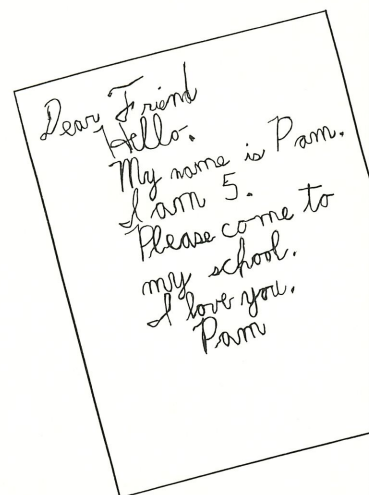 Dear, Friend
Hello.
My name is Pam.
I am 5.
Please come to
my school.
I love you.
Pam